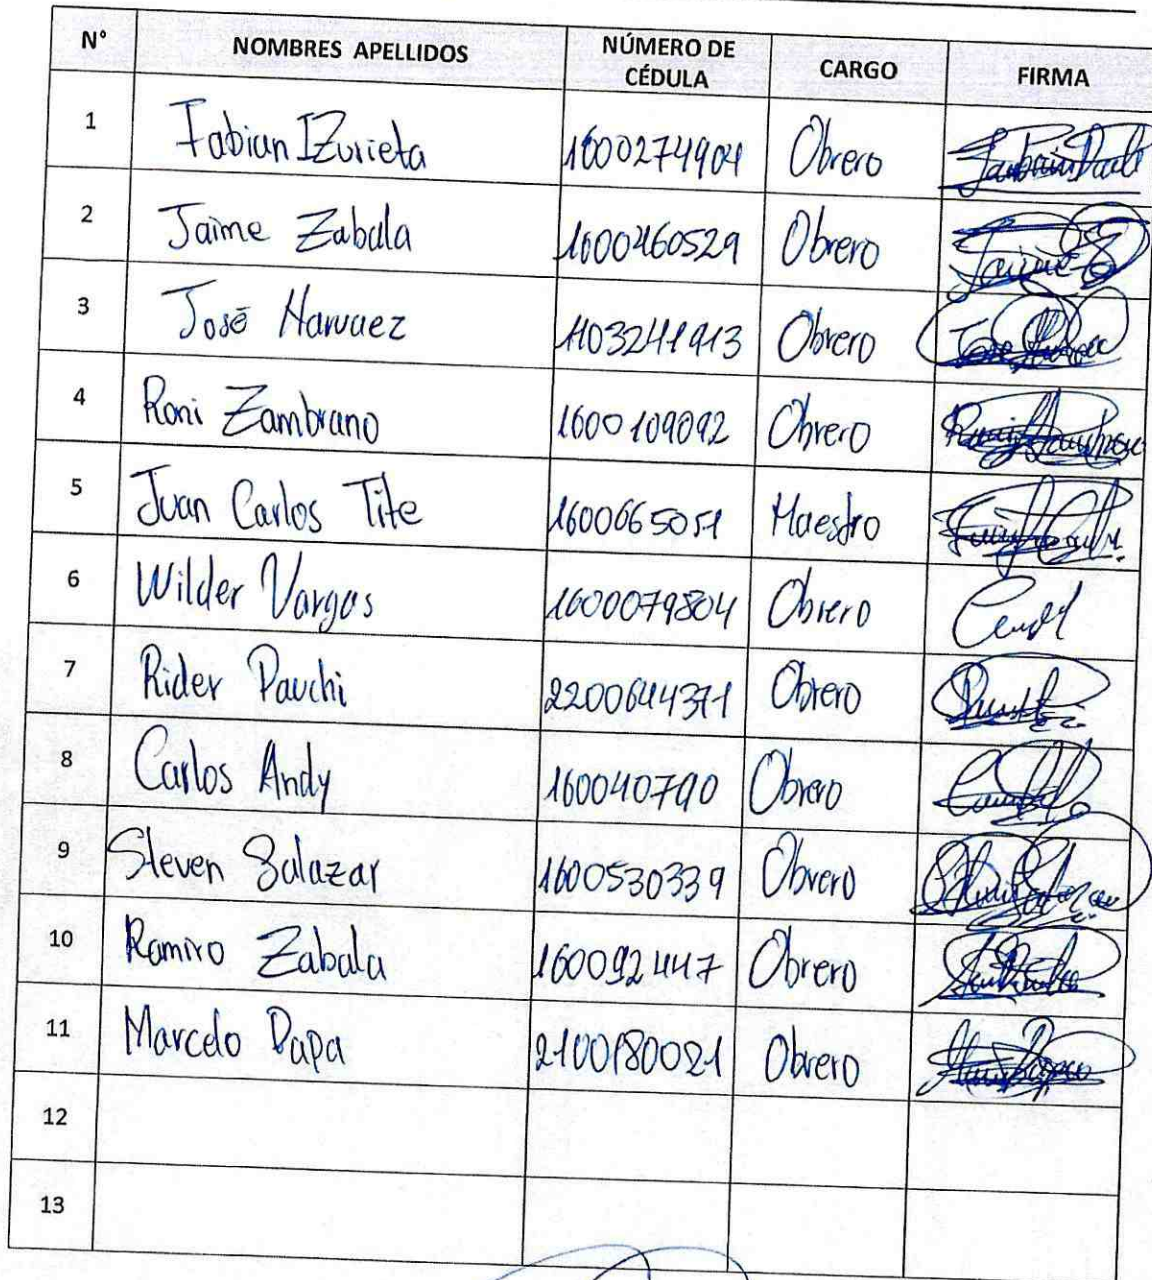 N° NOMBRES APELLIDOS NÚMERO DE CÉDULA CARGO FIRMA
1 Fabian IZurieta 1600274904 Obrero
2 Jaime Zabala 1600460529 Obrero Jaime
3 José Narvaez 1103241913 Obrero Jose
4 Roni Zambrano 1600109092 Obrero
5 Juan Carlos Tite 1600665051 Maestro
6 Wilder Vargas 1600079804 Obrero
7 Rider Pauchi 2200644371 Obrero
8 Carlos Andy 160040790 Obrero
9 Steven Salazar 1600530339 Obrero
10 Ramiro Zabala 160092447 Obrero
11 Marcelo Papa 2100180021 Obrero
12
13